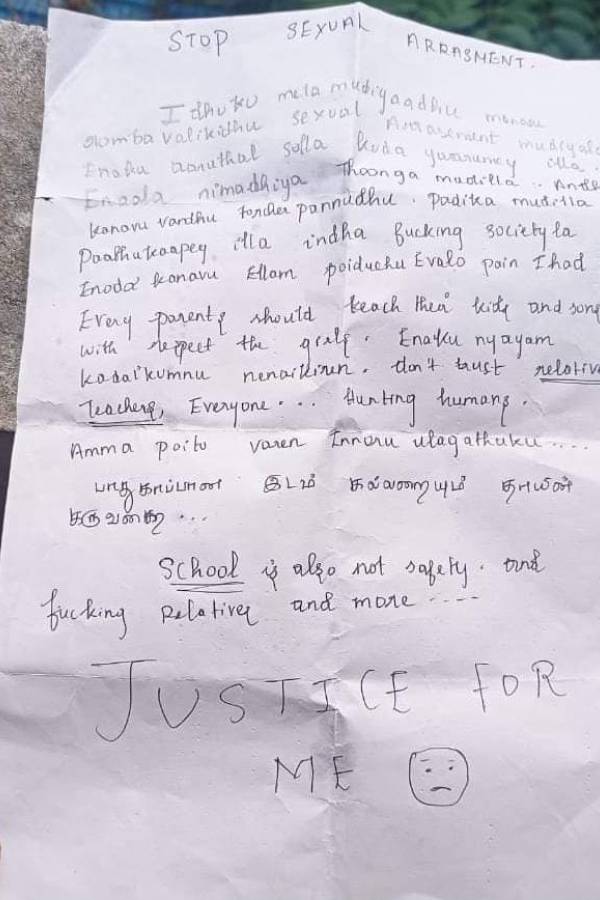 STOP SEXUAL ARRASMENT.
Idhuku mela mudiyaadhu manasu
romba valikidhu sexual Arrasement mudiyala
Enaku aaruthal solla kuda yaarumey illa.
Enaala nimadhiya Thoonga mudilla.. Andha
kanavu vandhu torcher pannudhu. Padika mudilla
Paadhukaapey illa indha fucking society la
Enoda kanavu Ellam poiduchu Evalo pain I had
Every parents should teach their kids and sons
with respect the girls. Enaku nyayam
kadaikumnu nenaikiren. don't trust relatives
Teachers, Everyone.... Hunting humans.
Amma poitu varen Innoru ulagathuku....
பாதுகாப்பான இடம் கல்லறையும் தாயின்
கருவறை...
School is also not safety. and
fucking Relatives and more ----
JUSTICE FOR
ME